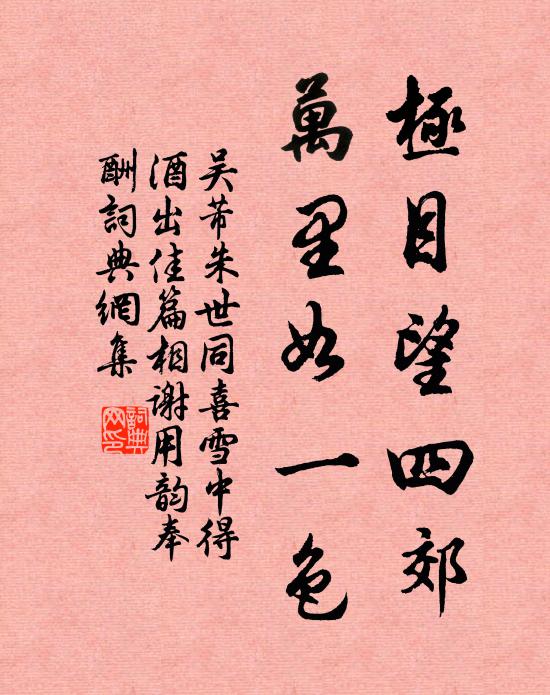 極目望四郊
萬里如一色
吴芾朱世同喜雪中得
酒出佳篇相謝用韵奉
酬詞典網集
詞典
网印